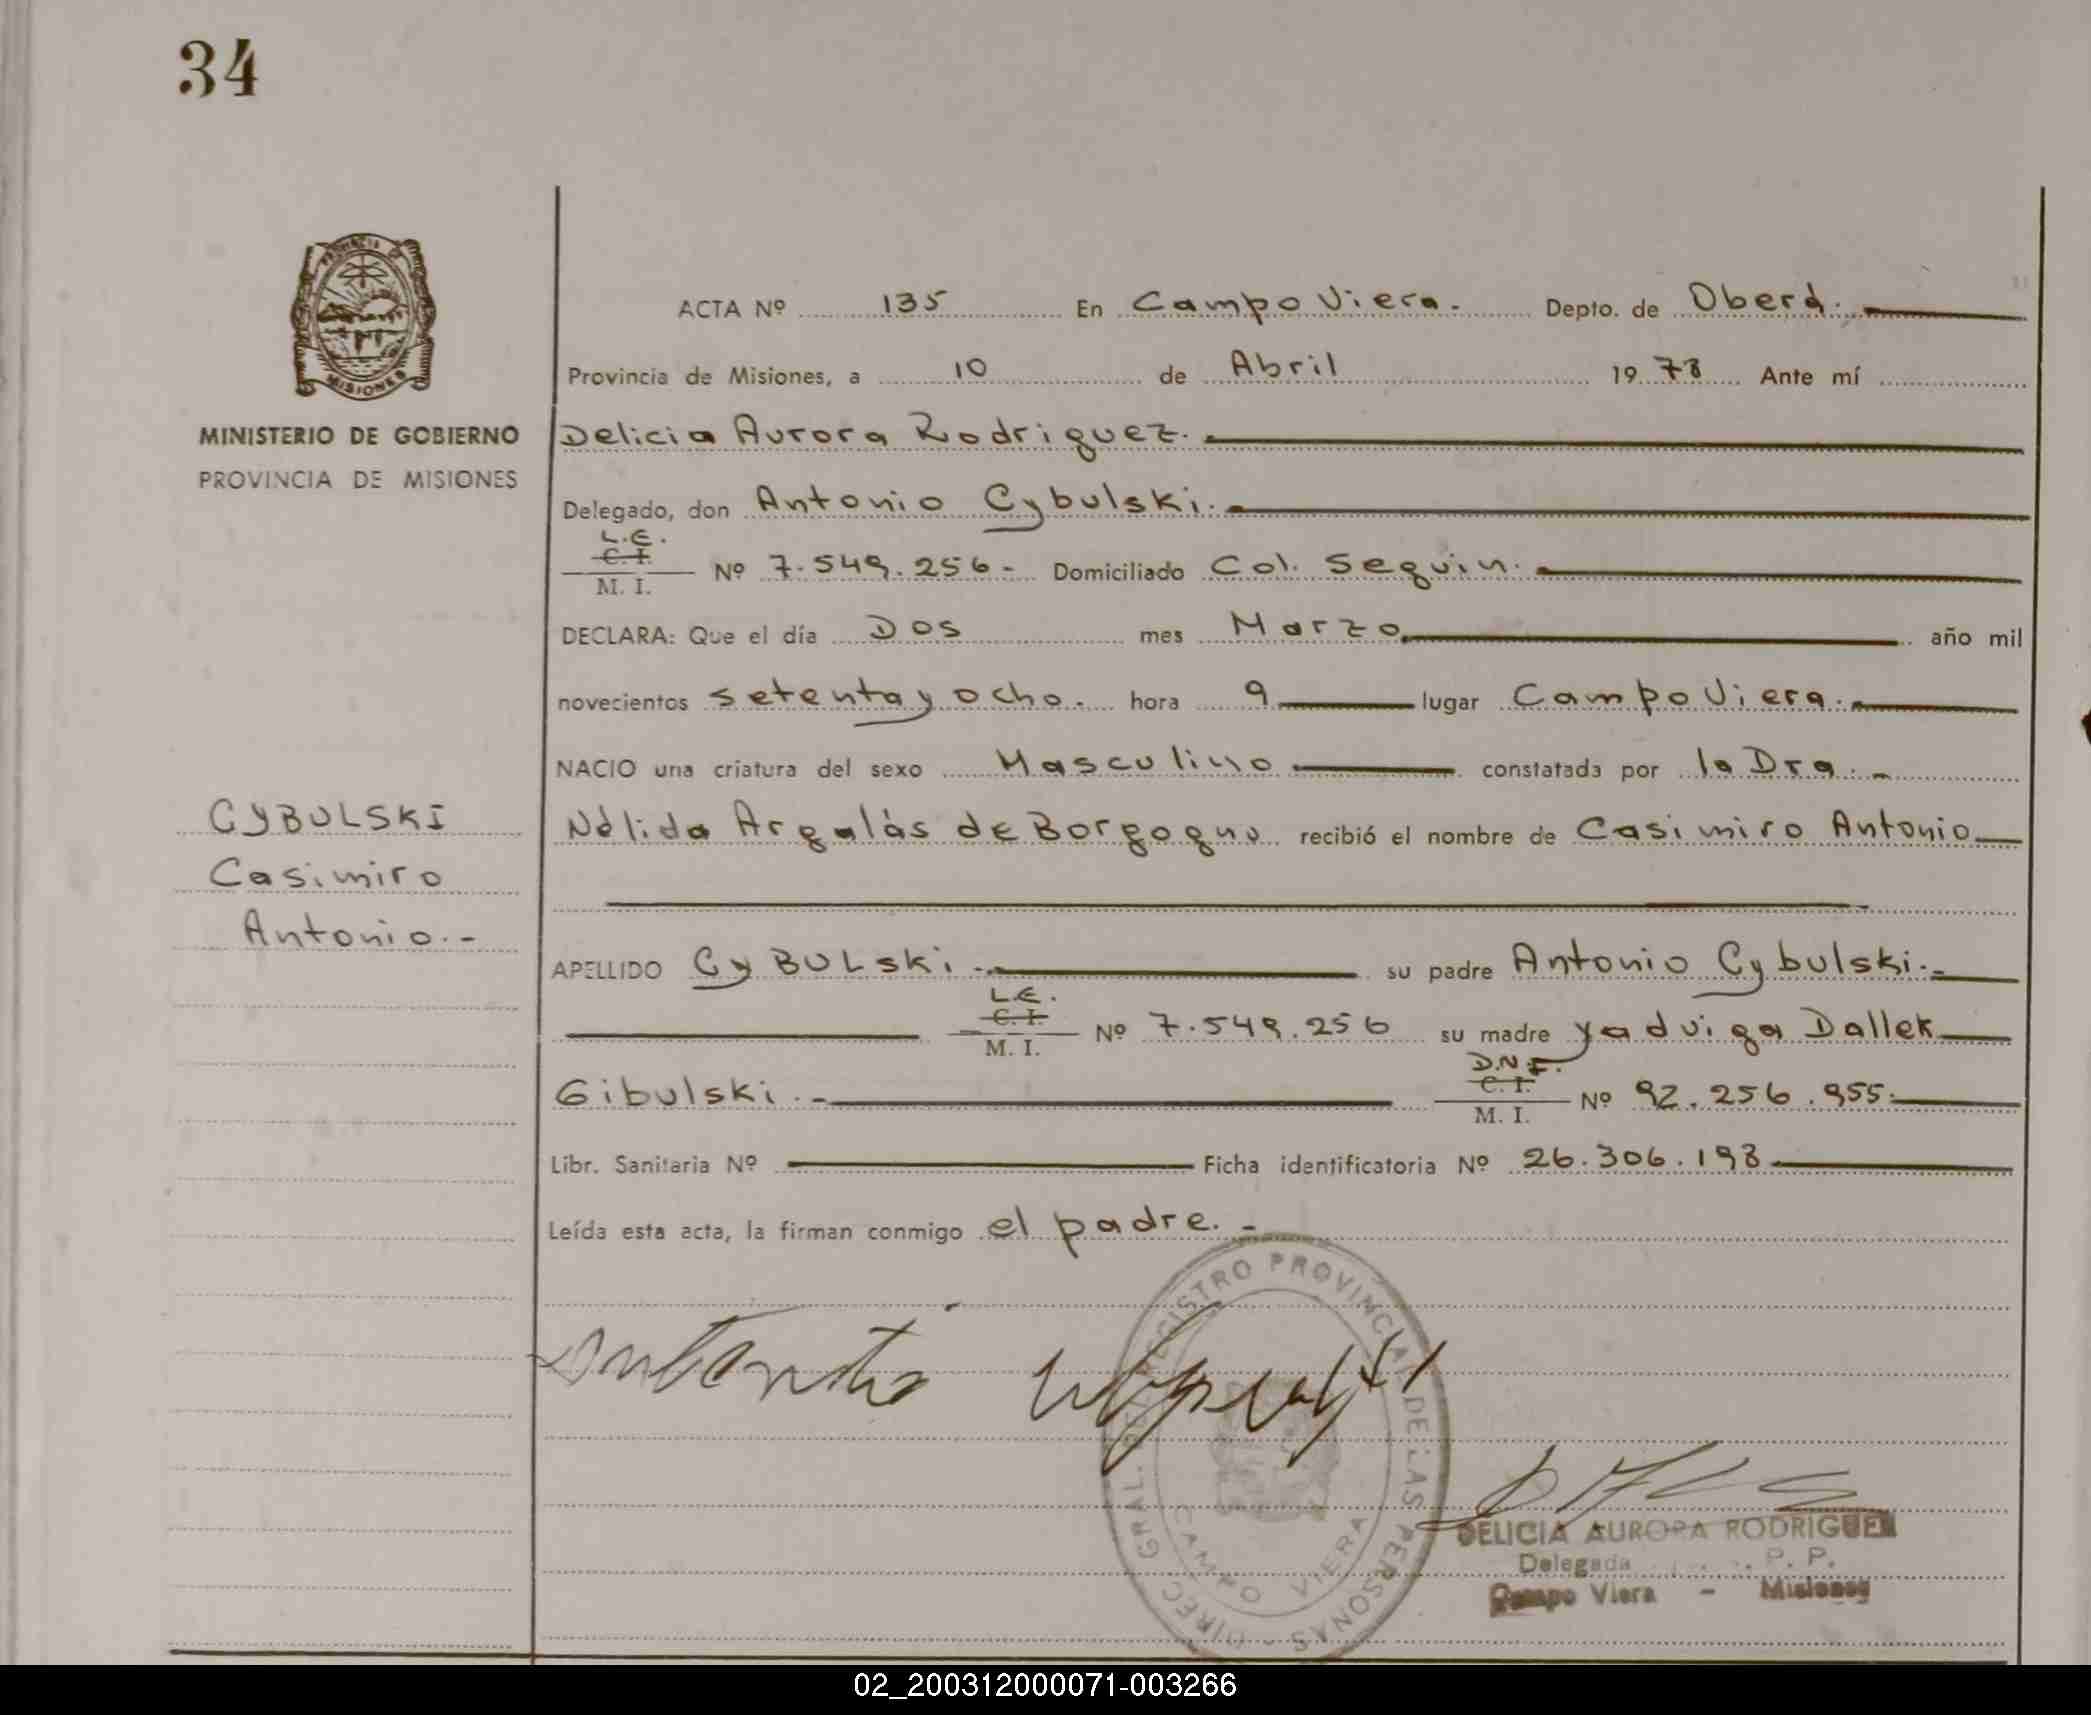 34
PROVINCIA DE
MISIONES
MINISTERIO DE GOBIERNO
PROVINCIA DE MISIONES
CYBULSKI
Casimiro
Antonio.-
ACTA Nº 135 En Campo Viera. Depto. de Oberá.
Provincia de Misiones, a 10 de Abril 1978 Ante mí
Delicia Aurora Rodriguez.
Delegado, don Antonio Cybulski.
L.E.
C. I.
M. I. Nº 7.549.256- Domiciliado Col. Seguin.
DECLARA: Que el día Dos mes Marzo año mil
novecientos setenta y ocho. hora 9 lugar Campo Viera.
NACIO una criatura del sexo Masculino constatada por la Dra.-
Nélida Argalás de Borgogno recibió el nombre de Casimiro Antonio
APELLIDO CyBULSki.- su padre Antonio Cybulski.-
L.E.
C. I.
M. I. Nº 7.549.256 su madre yadviga Dallek
D.N.I.
Gibulski.- C. I.
M. I. Nº 92.256.955.
Libr. Sanitaria Nº Ficha identificatoria Nº 26.306.198
Leída esta acta, la firman conmigo el padre.-
DIREC GRAL. DEL REGISTRO PROVINCIAL DE LAS PERSONAS -
CAMPO VIERA
DELICIA AURORA RODRIGUEZ
Delegada P. P.
Campo Viera - Misiones
02_200312000071-003266